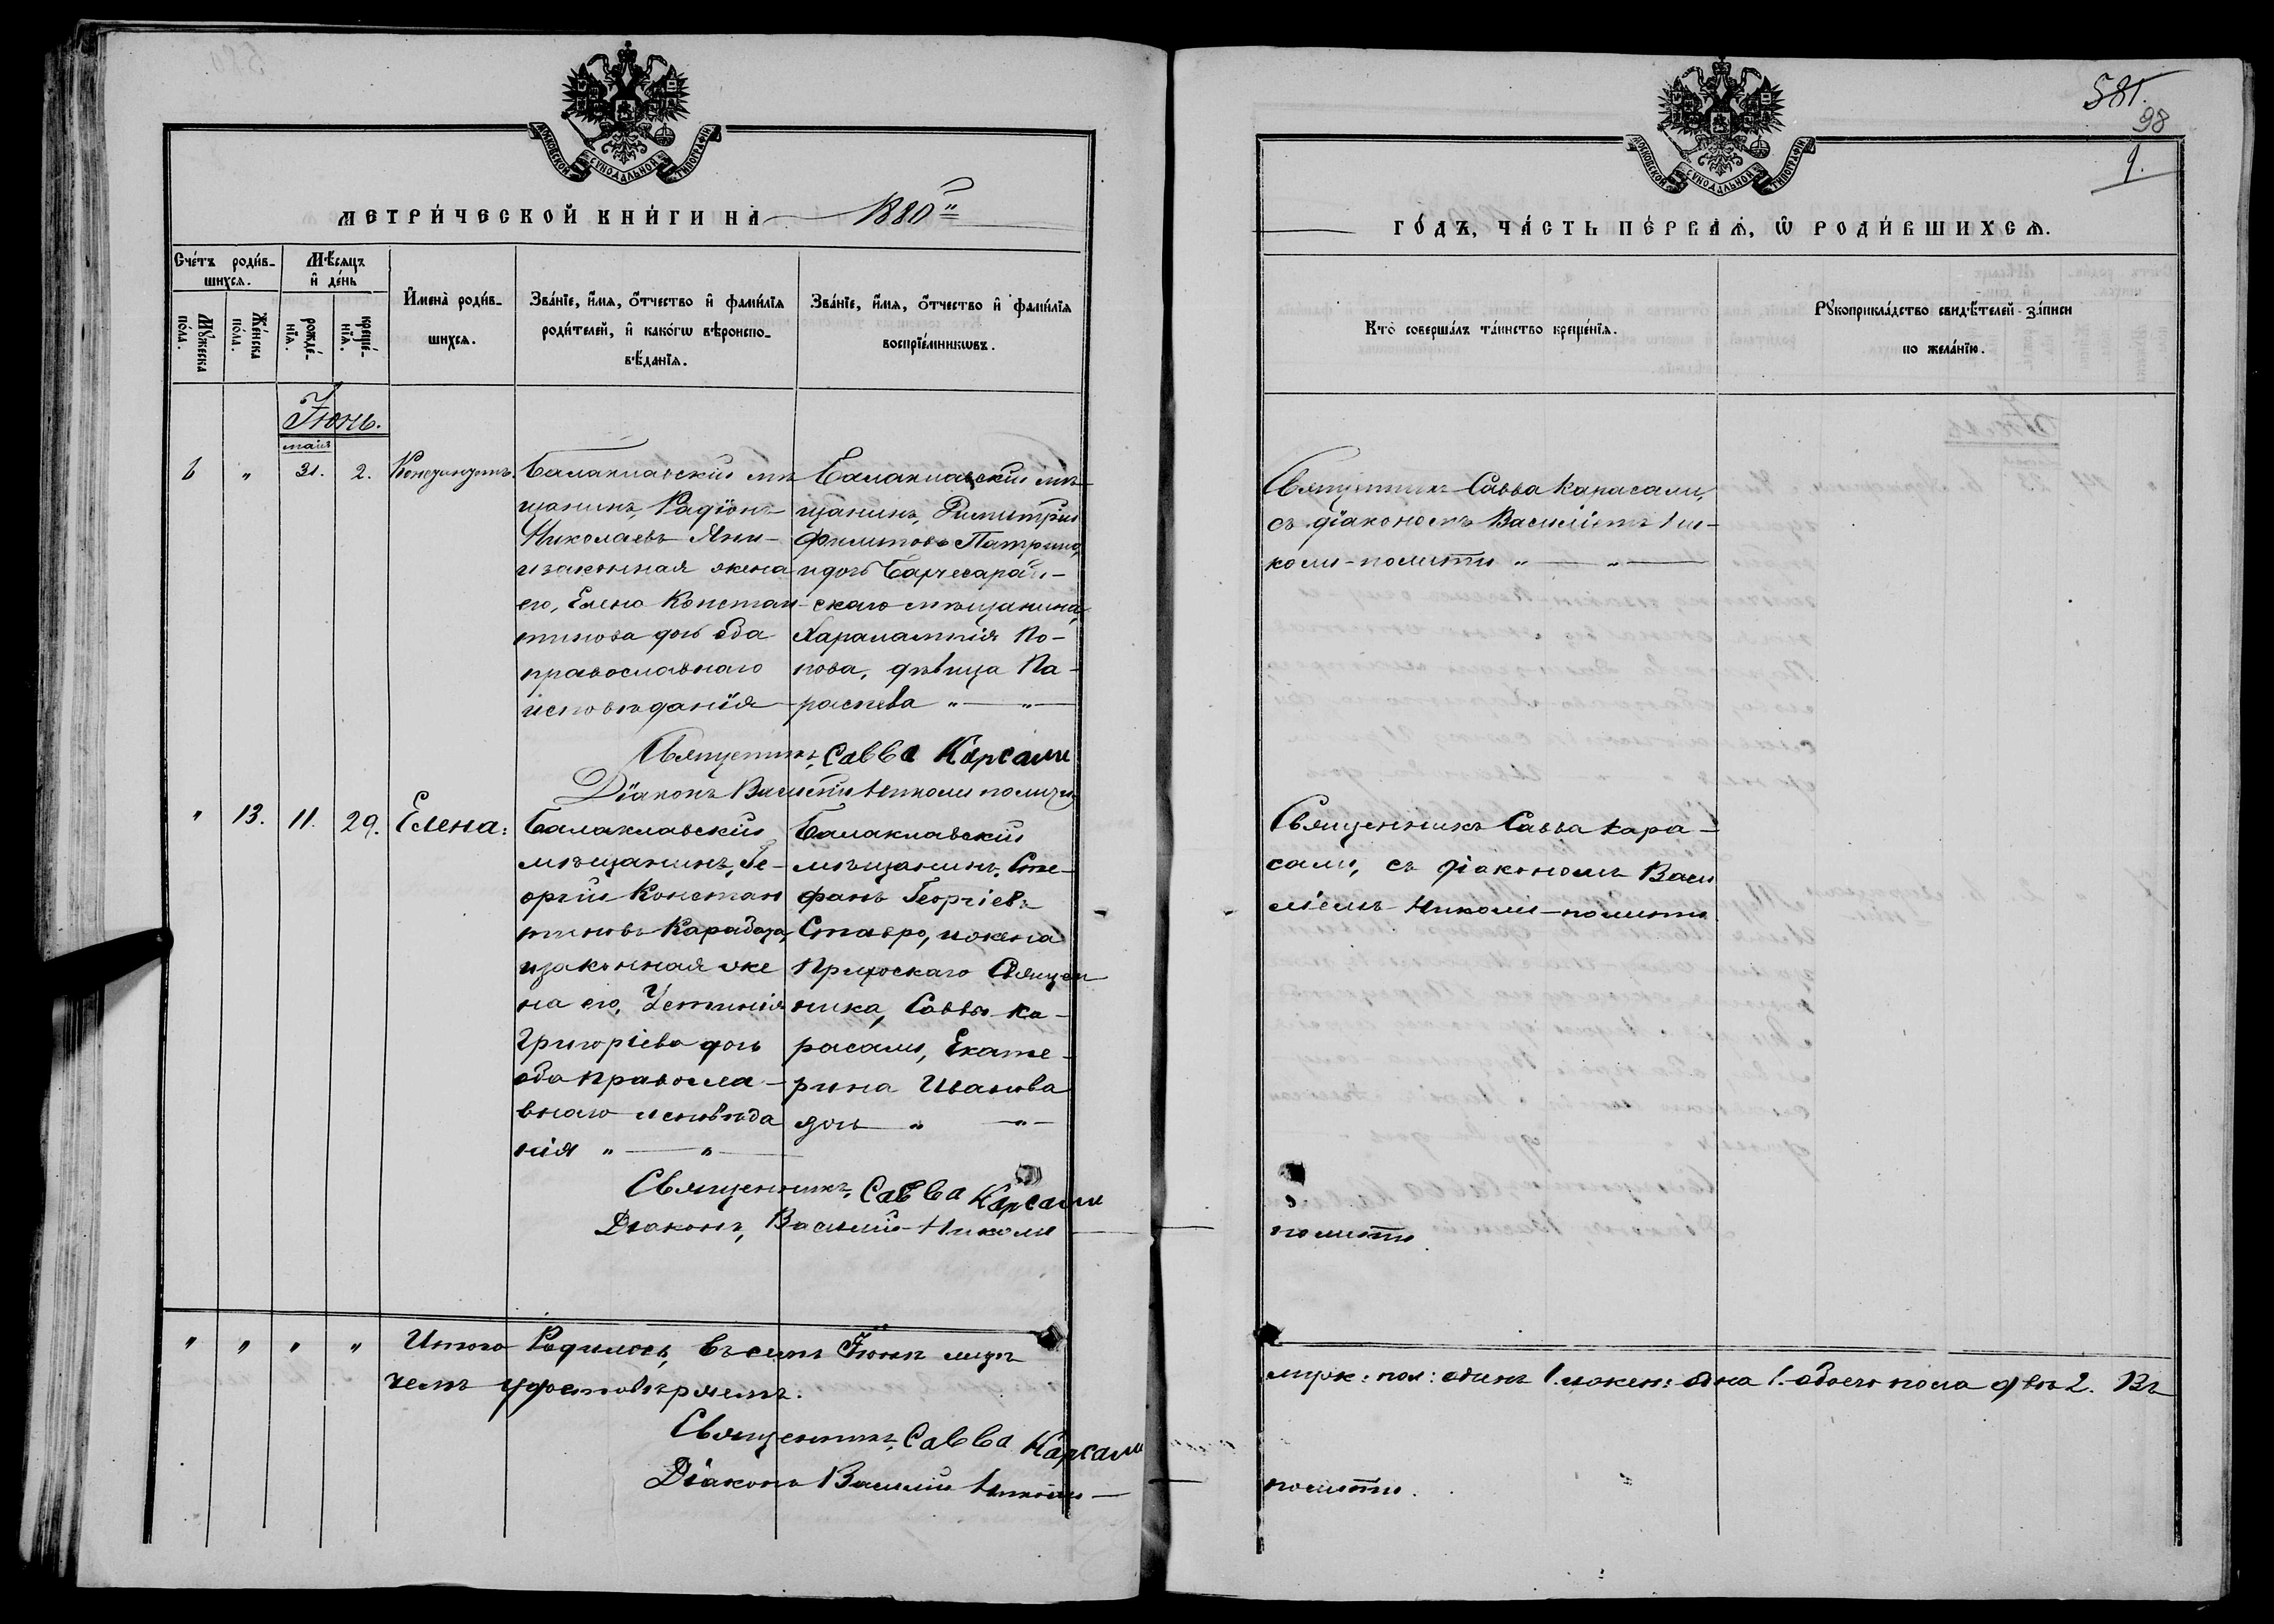 МОСКОВСКОЙ СѴНОДАЛЬНОЙ ТИПОГРАФІИ
МЕТРИ́ЧЕСКОЙ КНИ́ГИ НА 1880
Сче́тъ роди́в-
шихся.
Мѣ́сяцъ
и҆ де́нь
Мꙋ́жеска
по́ла.
Же́нска
по́ла.
рожде́-
нїѧ.
креще́-
нїѧ.
И҆мена̀ роди́в-
шихсѧ.
Зва́нїе, и҆́мѧ, ѻ҆́тчество и҆ фами́лїѧ
роди́телей, и҆ како́гѡ вѣроиспо-
вѣ́данїѧ.
Зва́нїе, и҆́мѧ, ѻ҆́тчество и҆ фами́лїѧ
воспрїе́мникѡвъ.
Іюнь.
маія
6 " 31. 2. Константинъ.
Балаклавскій мѣ
щанинъ, Радіонъ
Николаевъ Яни-
и законная жена
его, Елена Констан-
тинова дочь оба
православнаго
исповѣданія
Балаклавскій мѣ-
щанинъ, Димитрій
Филиповъ
и дочь Бахчесарай-
скаго мѣщанина,
Харалампія По-
пова, дѣвица Па-
раскева " — "
Священникъ, Савва Карсами
Діаконъ Василій Николи полити
" 13. 11. 29. Елена:
Балаклавскій
мѣщанинъ, Ге-
оргій Констан
тиновъ
и законная же
на его, Устинія
Григоріева дочь
оба правосла-
внаго исповѣда
нія " — "
Балаклавскій
мѣщанинъ, Сте-
фанъ Георгіевъ
Ставро, и жена
Священ
ника, Саввы Ка-
расами, Екате-
рина Иванова
дочь " "
Священникъ, Савва Карсами
Діаконъ, Василій Николи
" " " " Итого Родилось, въ семъ Іюнѣ мцѣ
чемъ удостовѣряемъ.
Священникъ, Савва Карсами
Діаконъ Василій Николи —
581.
98
1.
МОСКОВСКОЙ СѴНОДАЛЬНОЙ ТИПОГРАФІИ
ГО́ДЪ, ЧА́СТЬ ПЕ́РВАѦ, Ѡ҆ РОДИ́ВШИХСѦ.
Кто̀ соверша́лъ та́инство креще́нїѧ.
Рꙋкоприкла́дство свидѣ́телей за́писи
по жела́нїю.
Священникъ Савва Карасами,
съ діакономъ Василіемъ Ни-
коли-полити " — "
Священникъ Савва Кара-
сами, съ діакономъ Васи
ліемъ Николи-полити
полити.
муж: пол: одинъ 1. и жен: одна 1. обоего пола двѣ 2. Въ
полити.